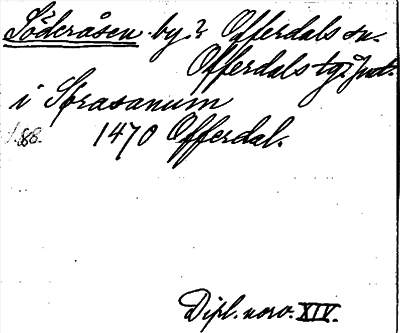 Söderåsen by? Offerdals sn.
Offerdals tg? Jmtl.
i Sørasanum
188. 1470 Offerdal.
Dipl. norv. XIV.